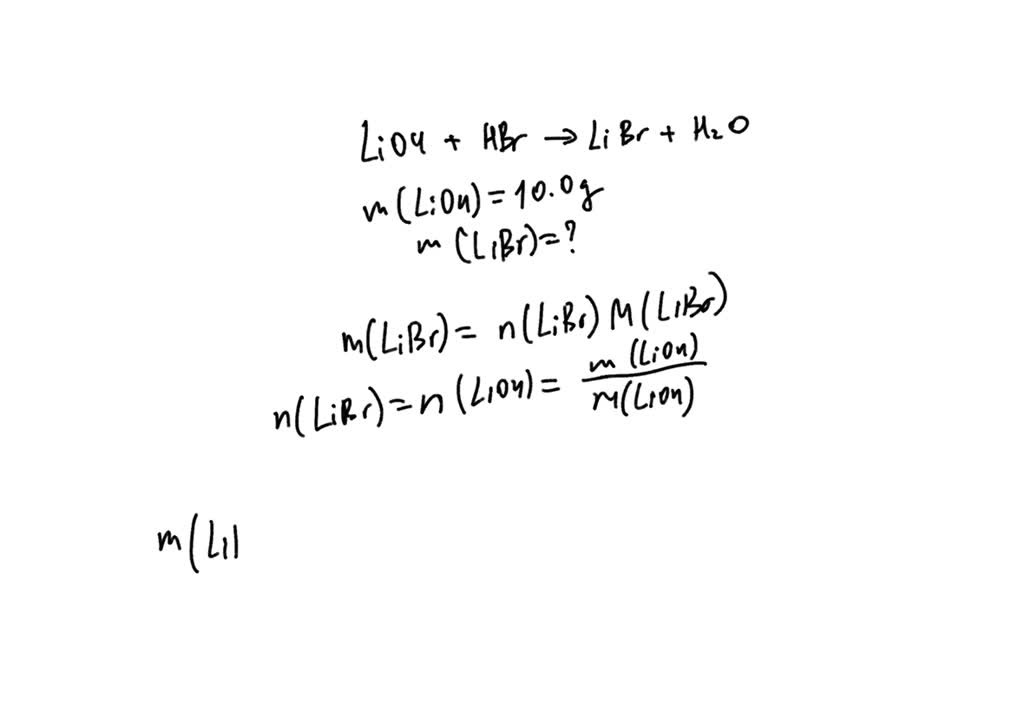 LiOH + HBr → LiBr + H₂O
m(LiOH) = 10.0g
m(LiBr) = ?
m(LiBr) = n(LiBr) M(LiBr)
n(LiBr) = n(LiOH) = m(LiOH) / M(LiOH)
m(Li